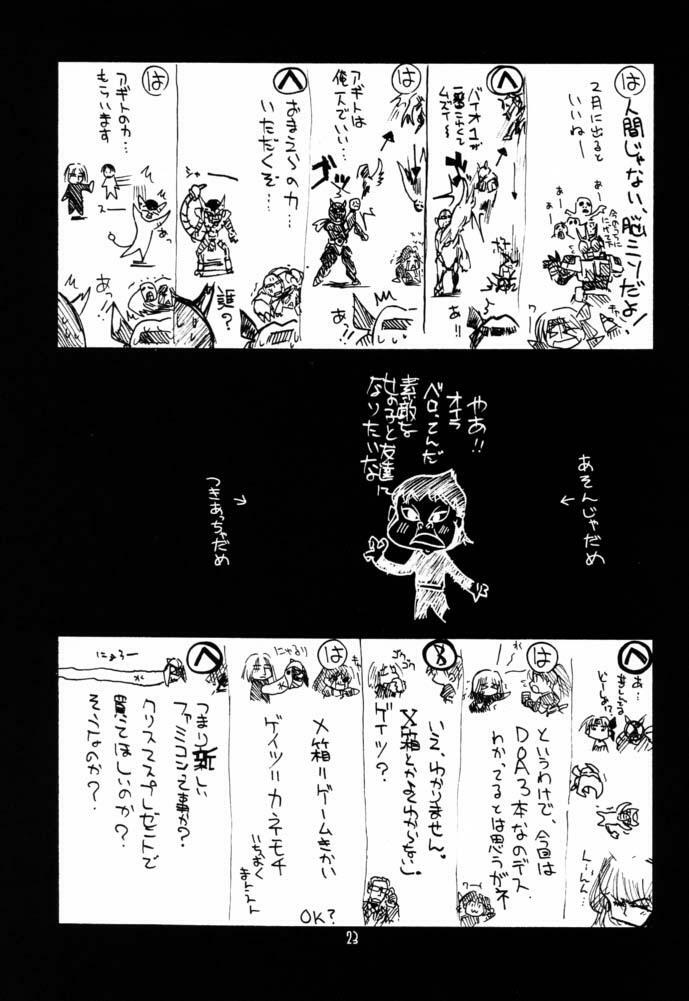 は
人間じゃない、脳ミソだよ!
2月に出ると
いいねー
あー
あー
あー
ワ
キャ
へ
バイオ1が
一番こわくて
ムズイ〜
あ!!
は
アギトは
俺一人でいい…
ゴッ
あっ!!
へ
おまえらの力…
いただくぞ…
誰?
は
アギトの力…
もらいます
スー
あっ
あっ!!
やあ!!
オイラ
ベロってんだ
素敵な
女の子と友達に
なりたいな
あそんじゃだめ
→
つきあっちゃだめ
へ
あ…
ど〜しよ!?
く〜んん…
は
というわけで、今回は
DOA3本なのデス
わかってるとは思うがネ
ワー
8
いえ、わかりません。
X箱とかよくわかんない」。
ゲイツ?
は
にゃるり
X箱=ゲームきかい
ゲイツ=カネモチ
いちおく
まんとスト
OK?
へ
にょろー
つまり新しい
ファミコンって事か?
クリスマスプレゼントで
買ってほしいのか?
そうなのか?
23